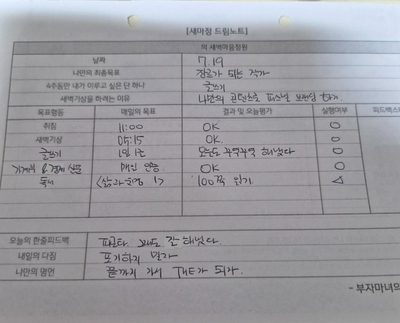 [새마정 드림노트]
의 새벽마음정원
날짜 7.19
나만의 최종목표 작가
4주동안 내가 이루고 싶은 단 하나 글쓰기
새벽기상을 하려는 이유 나만의 콘텐츠로 퍼스널 브랜딩 하기
목표행동 매일의 목표 결과 및 오늘평가 실행여부 피드백스
취침 11:00 OK O
새벽기상 05:15 OK O
글쓰기 1일 1글 오늘도 꾸역꾸역 해냈다 O
가계부 & 경제 신문 매일 인증 OK O
독서 100쪽 읽기 △
오늘의 한줄피드백 피곤타. 그래도 잘 해냈다.
내일의 다짐 포기하지 말자
나만의 명언 끝까지 가서 THE가 되자.
- 부자마녀의